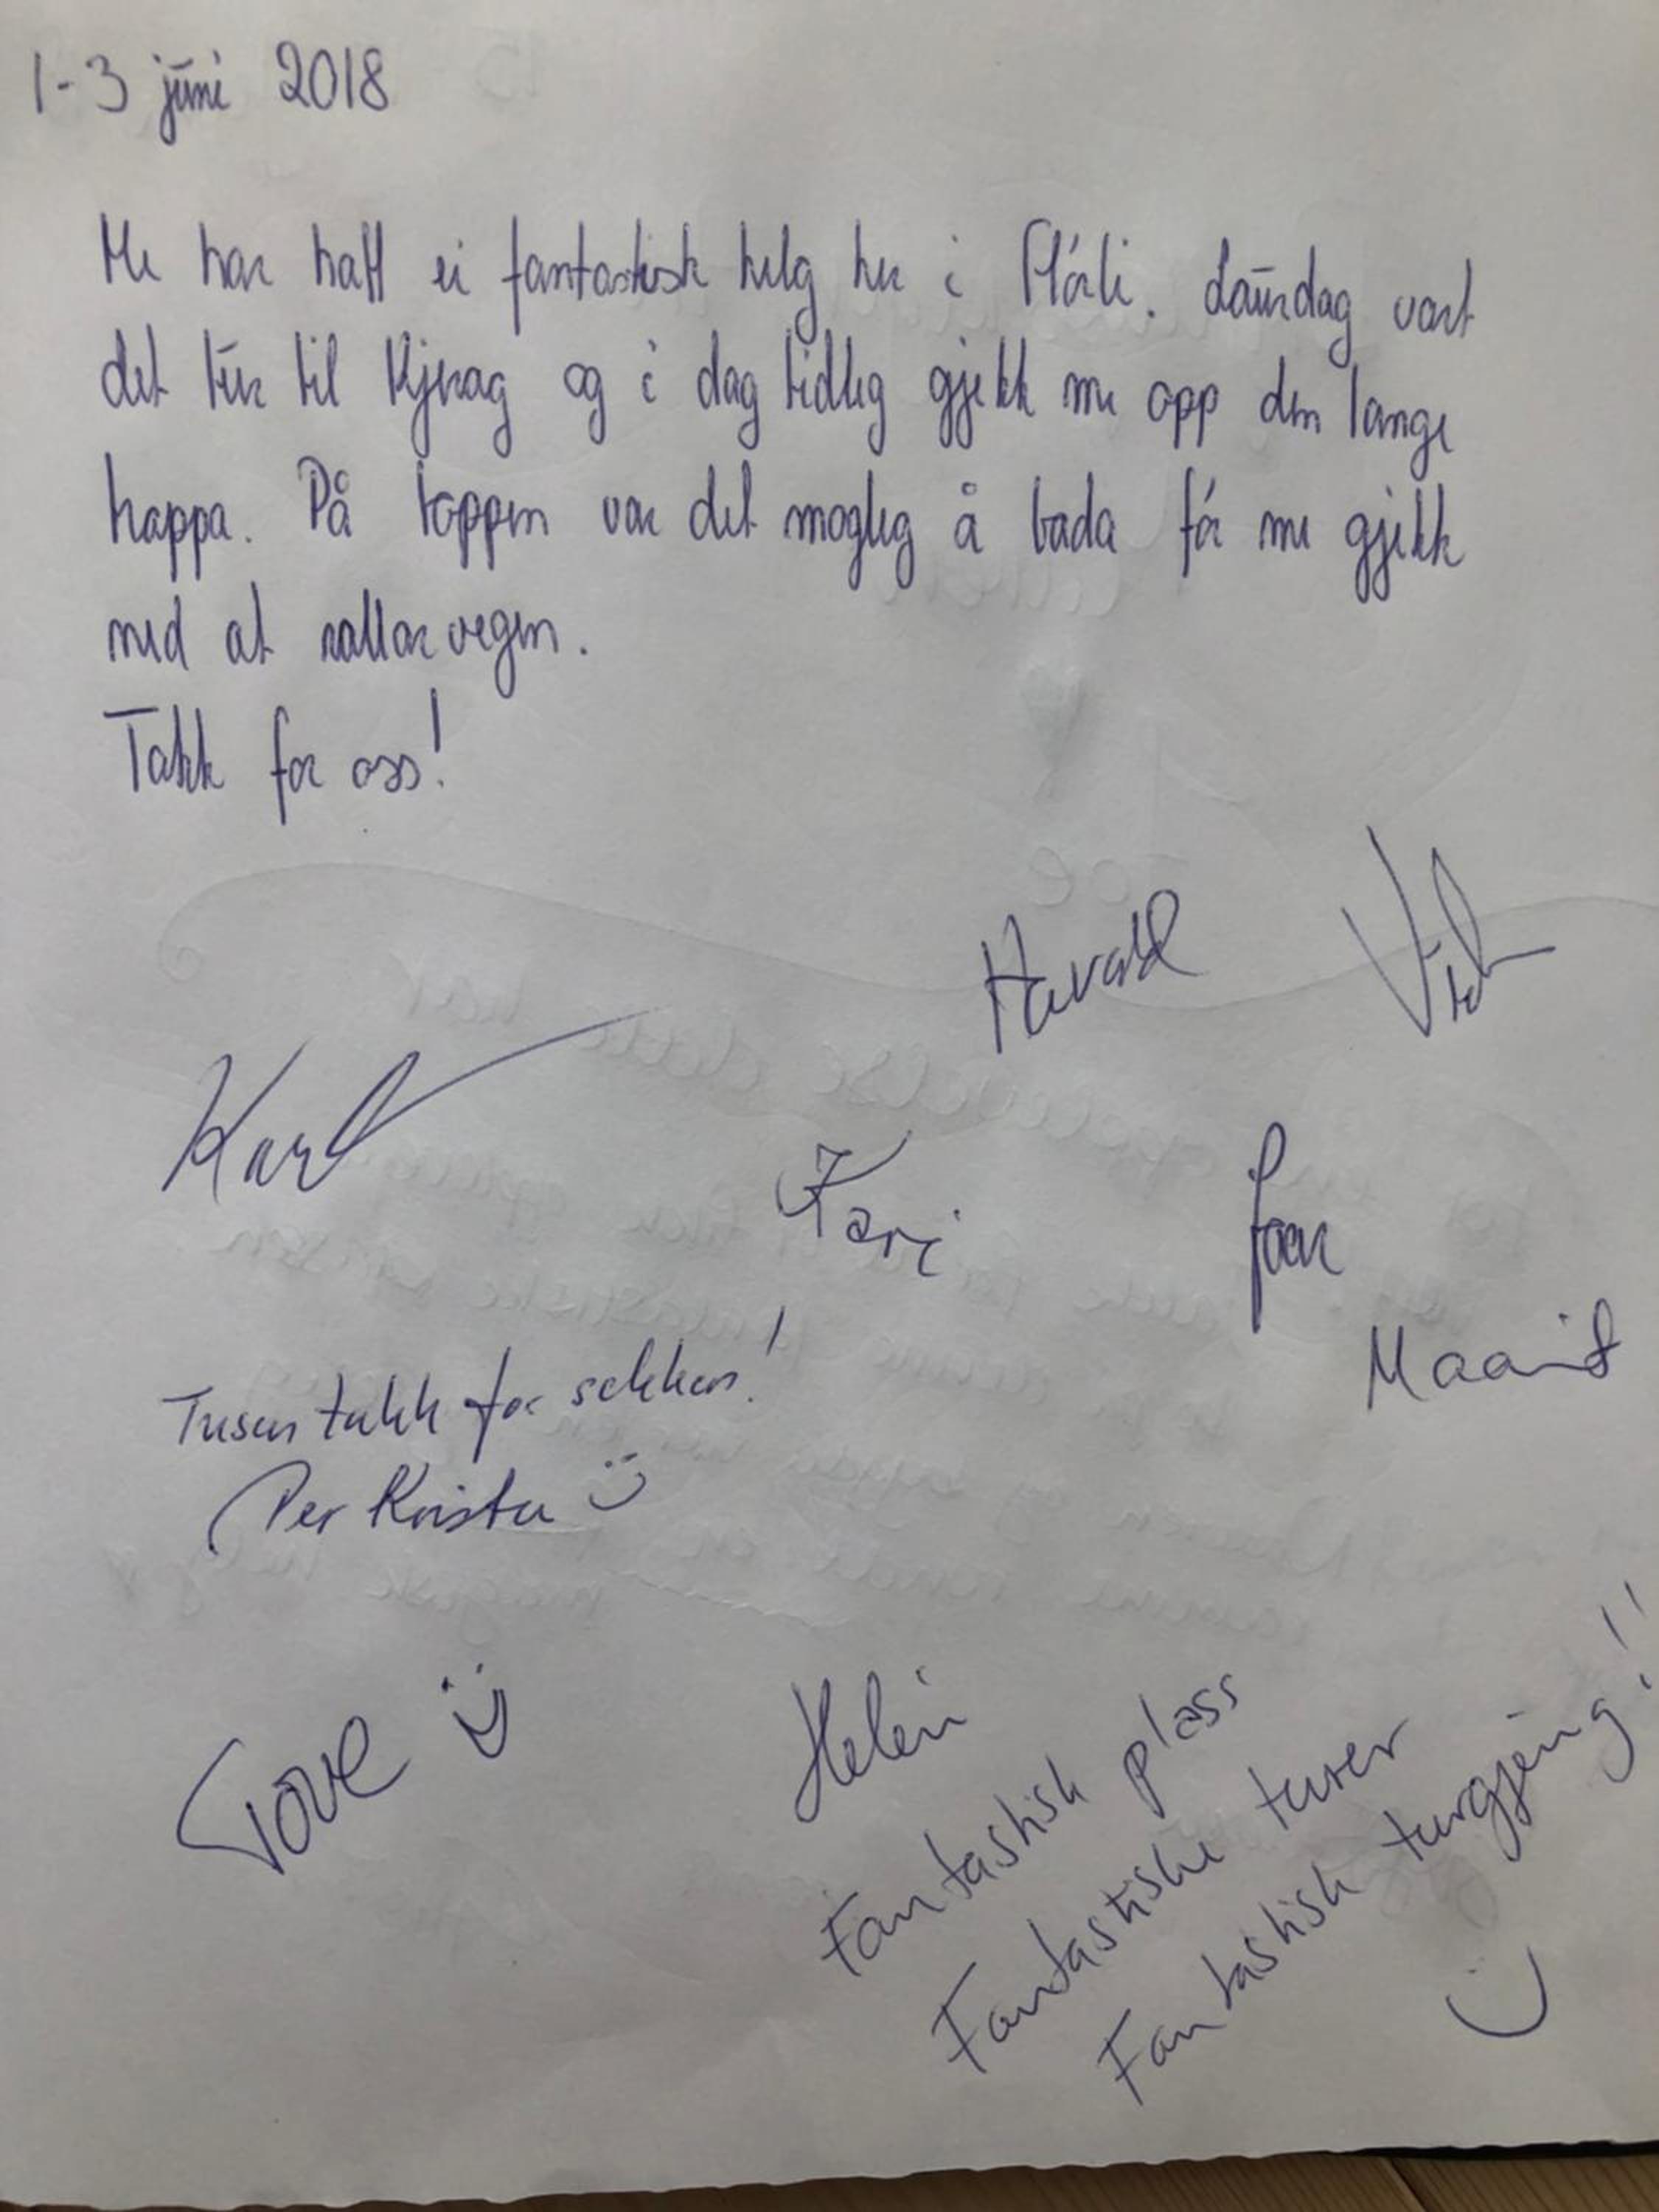 1-3 juni 2018
Me har hatt ei fantastisk helg her i Flørli. Laurdag vart
det tur til Kjerag og i dag tidleg gjekk me opp den lange
trappa. På toppen var det mogleg å bada før me gjekk
ned at rallarvegen.
Takk for oss!
Harald
Karl
Kari
Maarit
Tusen takk for sekken!
Per Krister
Tove
Helen
Fantastisk plass
Fantastiske turer
Fantastisk turgjeng!!